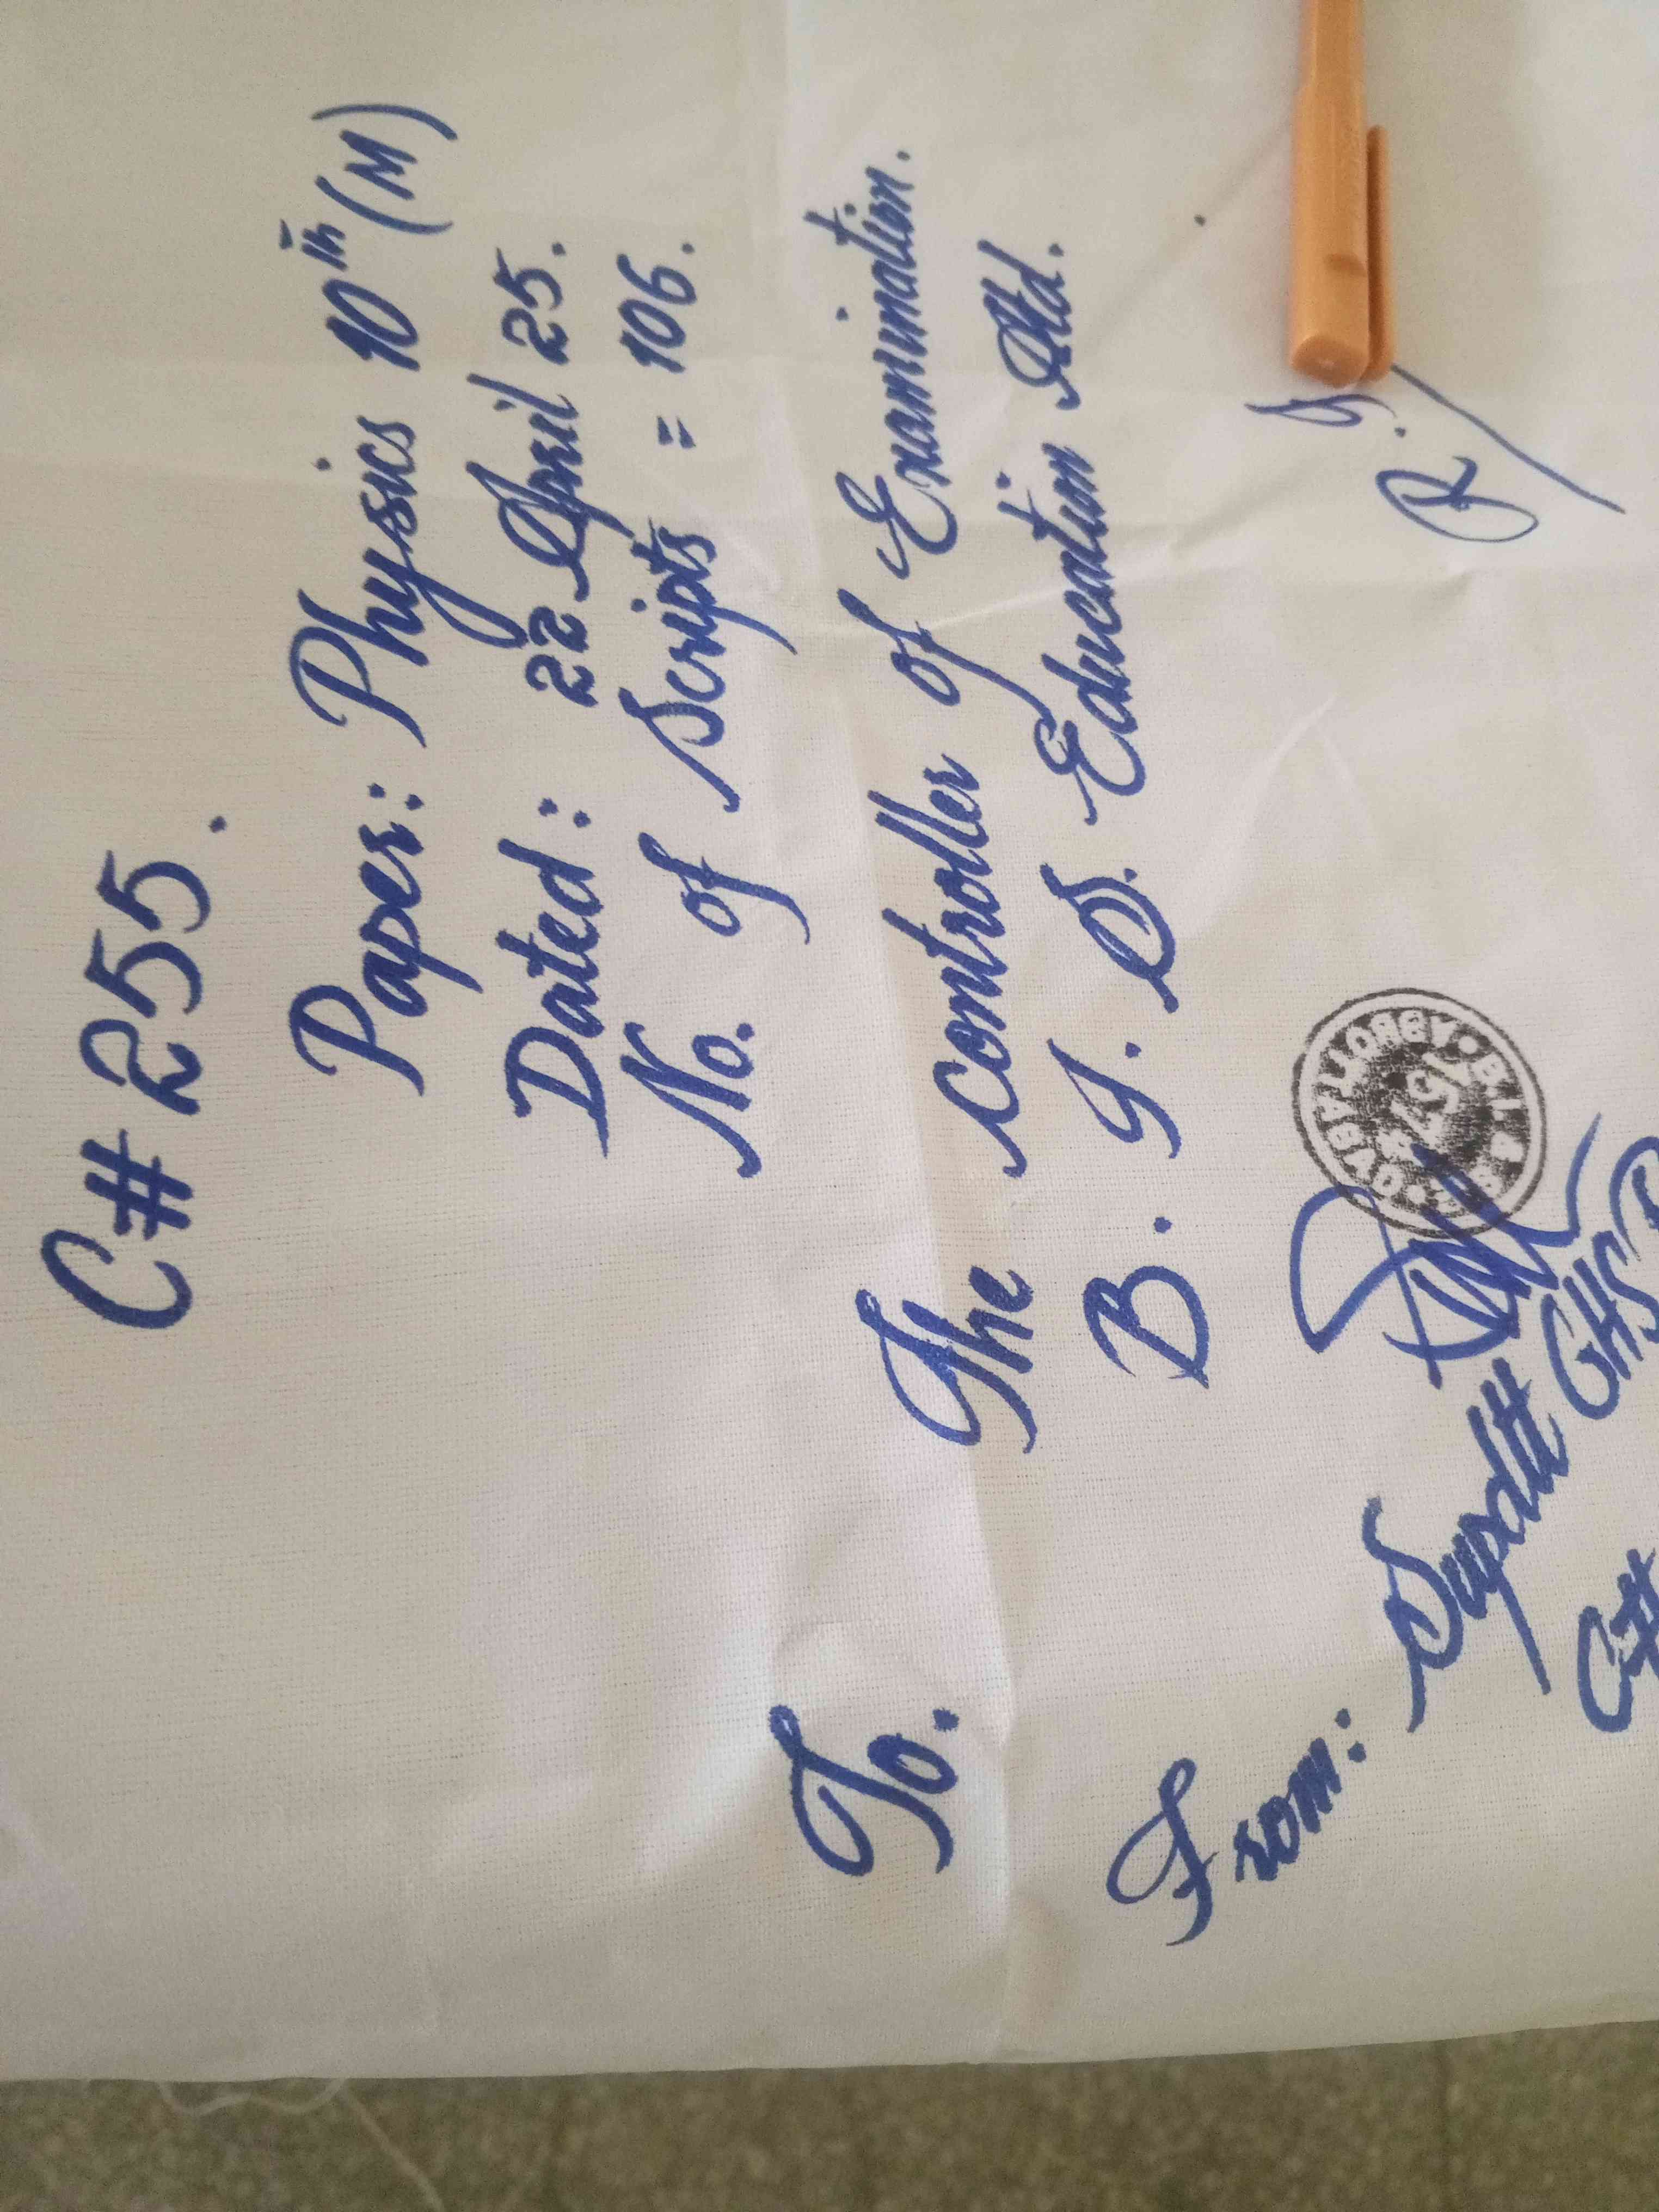 C# 255.
Paper: Physics 10th (M)
Dated: 22 April 25.
No. of Scripts = 106.
To.
The Controller of Examination.
B. I. S. Education Atd.
From: Supdtt
GHS
C#